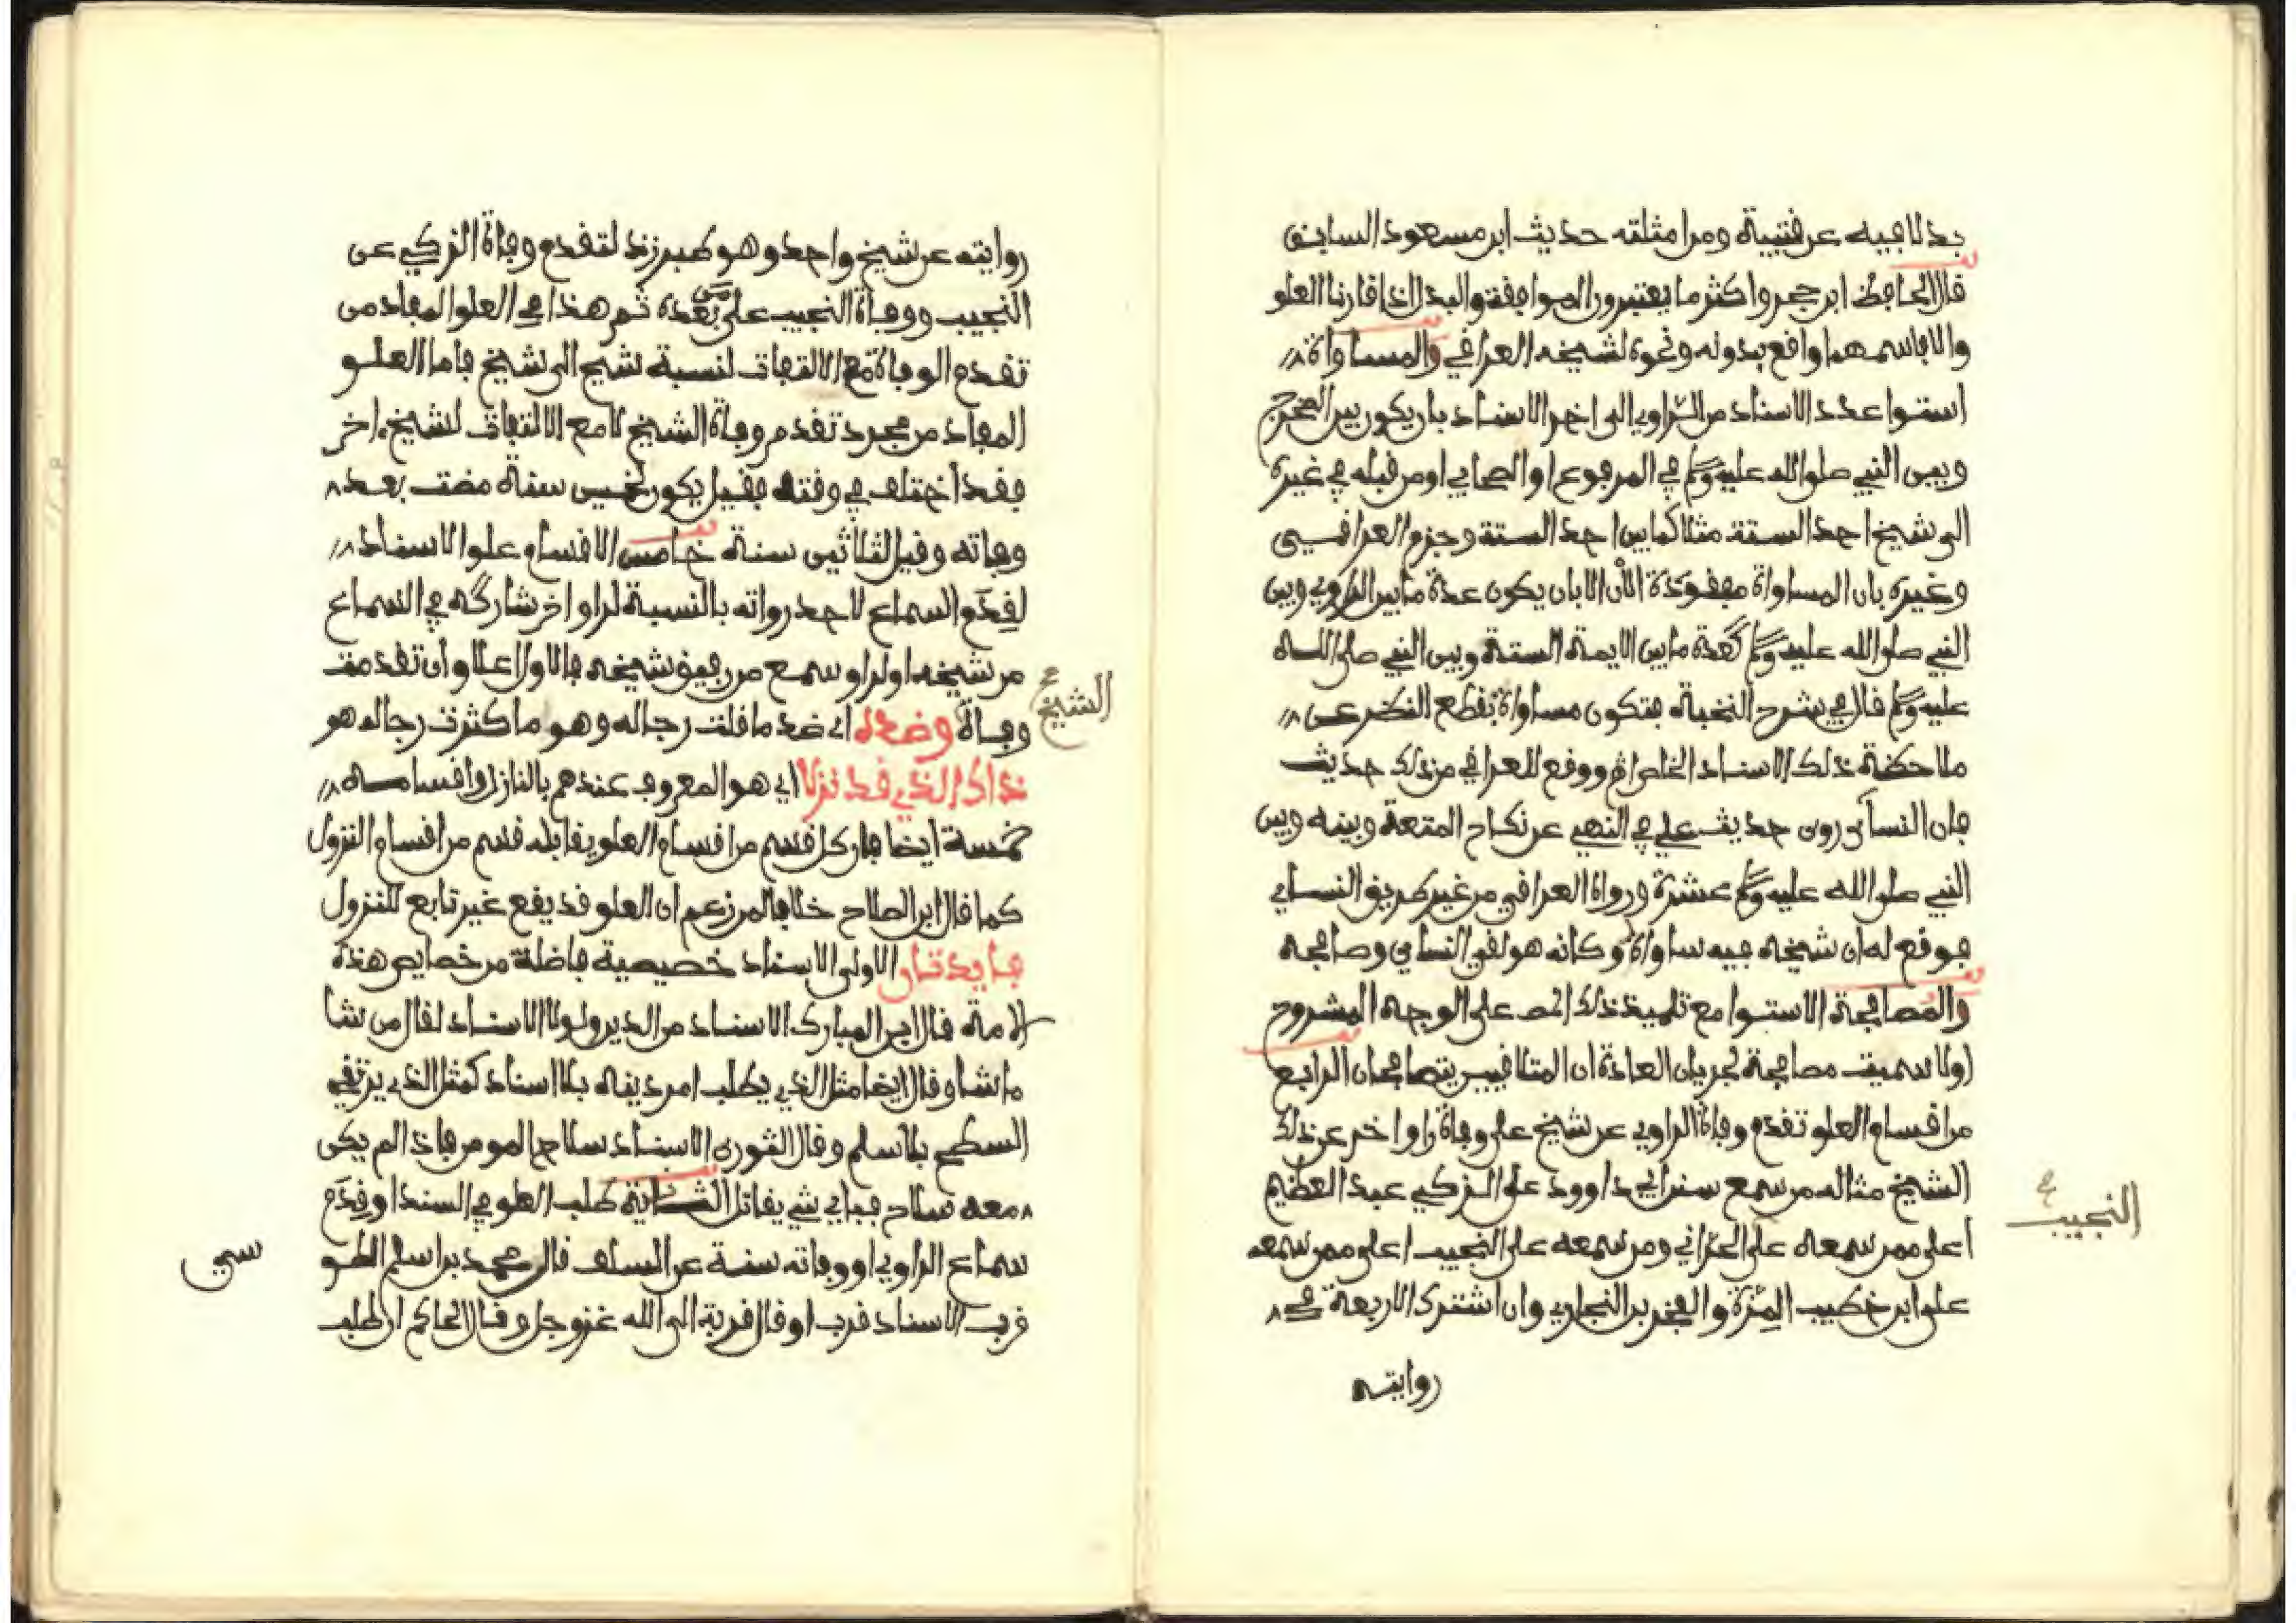 بدلا فيه عن قتيبة ومن امثلته حديث ابن مسعود السابق
قال الحافظ ابن حجر واكثر ما يعتبرون الموافقة والبدل اذا قارنا العلو
والا فاسمهما واقع بدونه ونحوه لشيخه العراقي والمساواة
استوا عدد الاسناد من الراوي الى اخر الاسناد بان يكون بين المخرج
وبين النبي صلى الله عليه وسلم في المرفوع او الصحابي او من قبله في غيره
الى شيخ احد الستة مثلا كما بين احد الستة وجزم العراقي
وغيره بان المساواة مفقودة الان الا بان يكون عدة ما بين الراوي وبين
النبي صلى الله عليه وسلم كعدة ما بين الايمة الستة وبين النبي صلى الله
عليه وسلم قال في شرح النخبة فتكون مساواة بقطع النظر عن
ملاحظة ذلك الاسناد الخاص ووقع للعراقي من ذلك حديث
فان النسائي روى حديث علي في النهي عن نكاح المتعة وبينه وبين
النبي صلى الله عليه وسلم عشرة ورواه العراقي من غير طريق النسائي
فوقع له ان شيخه فيه ساواه وكانه هو لقي النسائي وصافحه
والمصافحة الاستوا مع تلميذ ذلك المص على الوجه المشروح
اولا سميت مصافحة لجريان العادة ان المتلاقيين يتصافحان الرابع
من اقسام العلو تقدم وفاة الراوي عن شيخ على وفاة راو اخر عن ذلك
الشيخ مثاله من سمع سنن ابي داوود على الزكي عبد العظيم
اعلى ممن سمعه على الحراني ومن سمعه على النجيب اعلى ممن سمعه
على ابن خطيب المزة والفخر بن البخاري وان اشترك الاربعة في
النجيب
روايته
روايته عن شيخ واحد وهو طبرزذ لتقدم وفاة الزكي عن
النجيب ووفاة النجيب على من بعده ثم هذا في العلو المفاد من
تقدم الوفاة مع الالتفات لنسبة شيخ الى شيخ فاما العلو
المفاد من مجرد تقدم وفاة الشيخ لا مع الالتفات لشيخ اخر
فقد اختلف في وقته فقيل يكون لخمسين سنة مضت بعد
وفاته وقيل لثلاثين سنة خامس الاقسام علو الاسناد
لقدم السماع لاحد رواته بالنسبة لراو اخر شاركه في السماع
من شيخه او لراو سمع من رفيق شيخه فالاول اعلا وان تقدمت
الشيخ
وفاة وضده اي ضد ما قلت رجاله وهو ما كثرت رجاله هو
ذاك الذي قد نزلا اي هو المعروف عندهم بالنازل واقسامه
خمسة ايضا فان كل قسم من اقسام العلو يقابله قسم من اقسام النزول
كما قال ابن الصلاح خلافا لمن زعم ان العلو قد يقع غير تابع للنزول
فايدتان الاولى الاسناد خصيصية فاضلة من خصايص هذه
الامة قال ابن المبارك الاسناد من الدين ولولا الاسناد لقال من شا
ما شا وقال ايضا مثل الذي يطلب امر دينه بلا اسناد كمثل الذي يرتقي
السطح بلا سلم وقال الثوري الاسناد سلاح المومن فاذا لم يكن
معه سلاح فباي شي يقاتل الثانية طلب العلو في السند او قدم
سماع الراوي او وفاته سنة عن السلف قال محمد بن اسلم الطو
سي
قرب الاسناد قرب او قال قربة الى الله عز وجل وقال الحاكم ان طلب